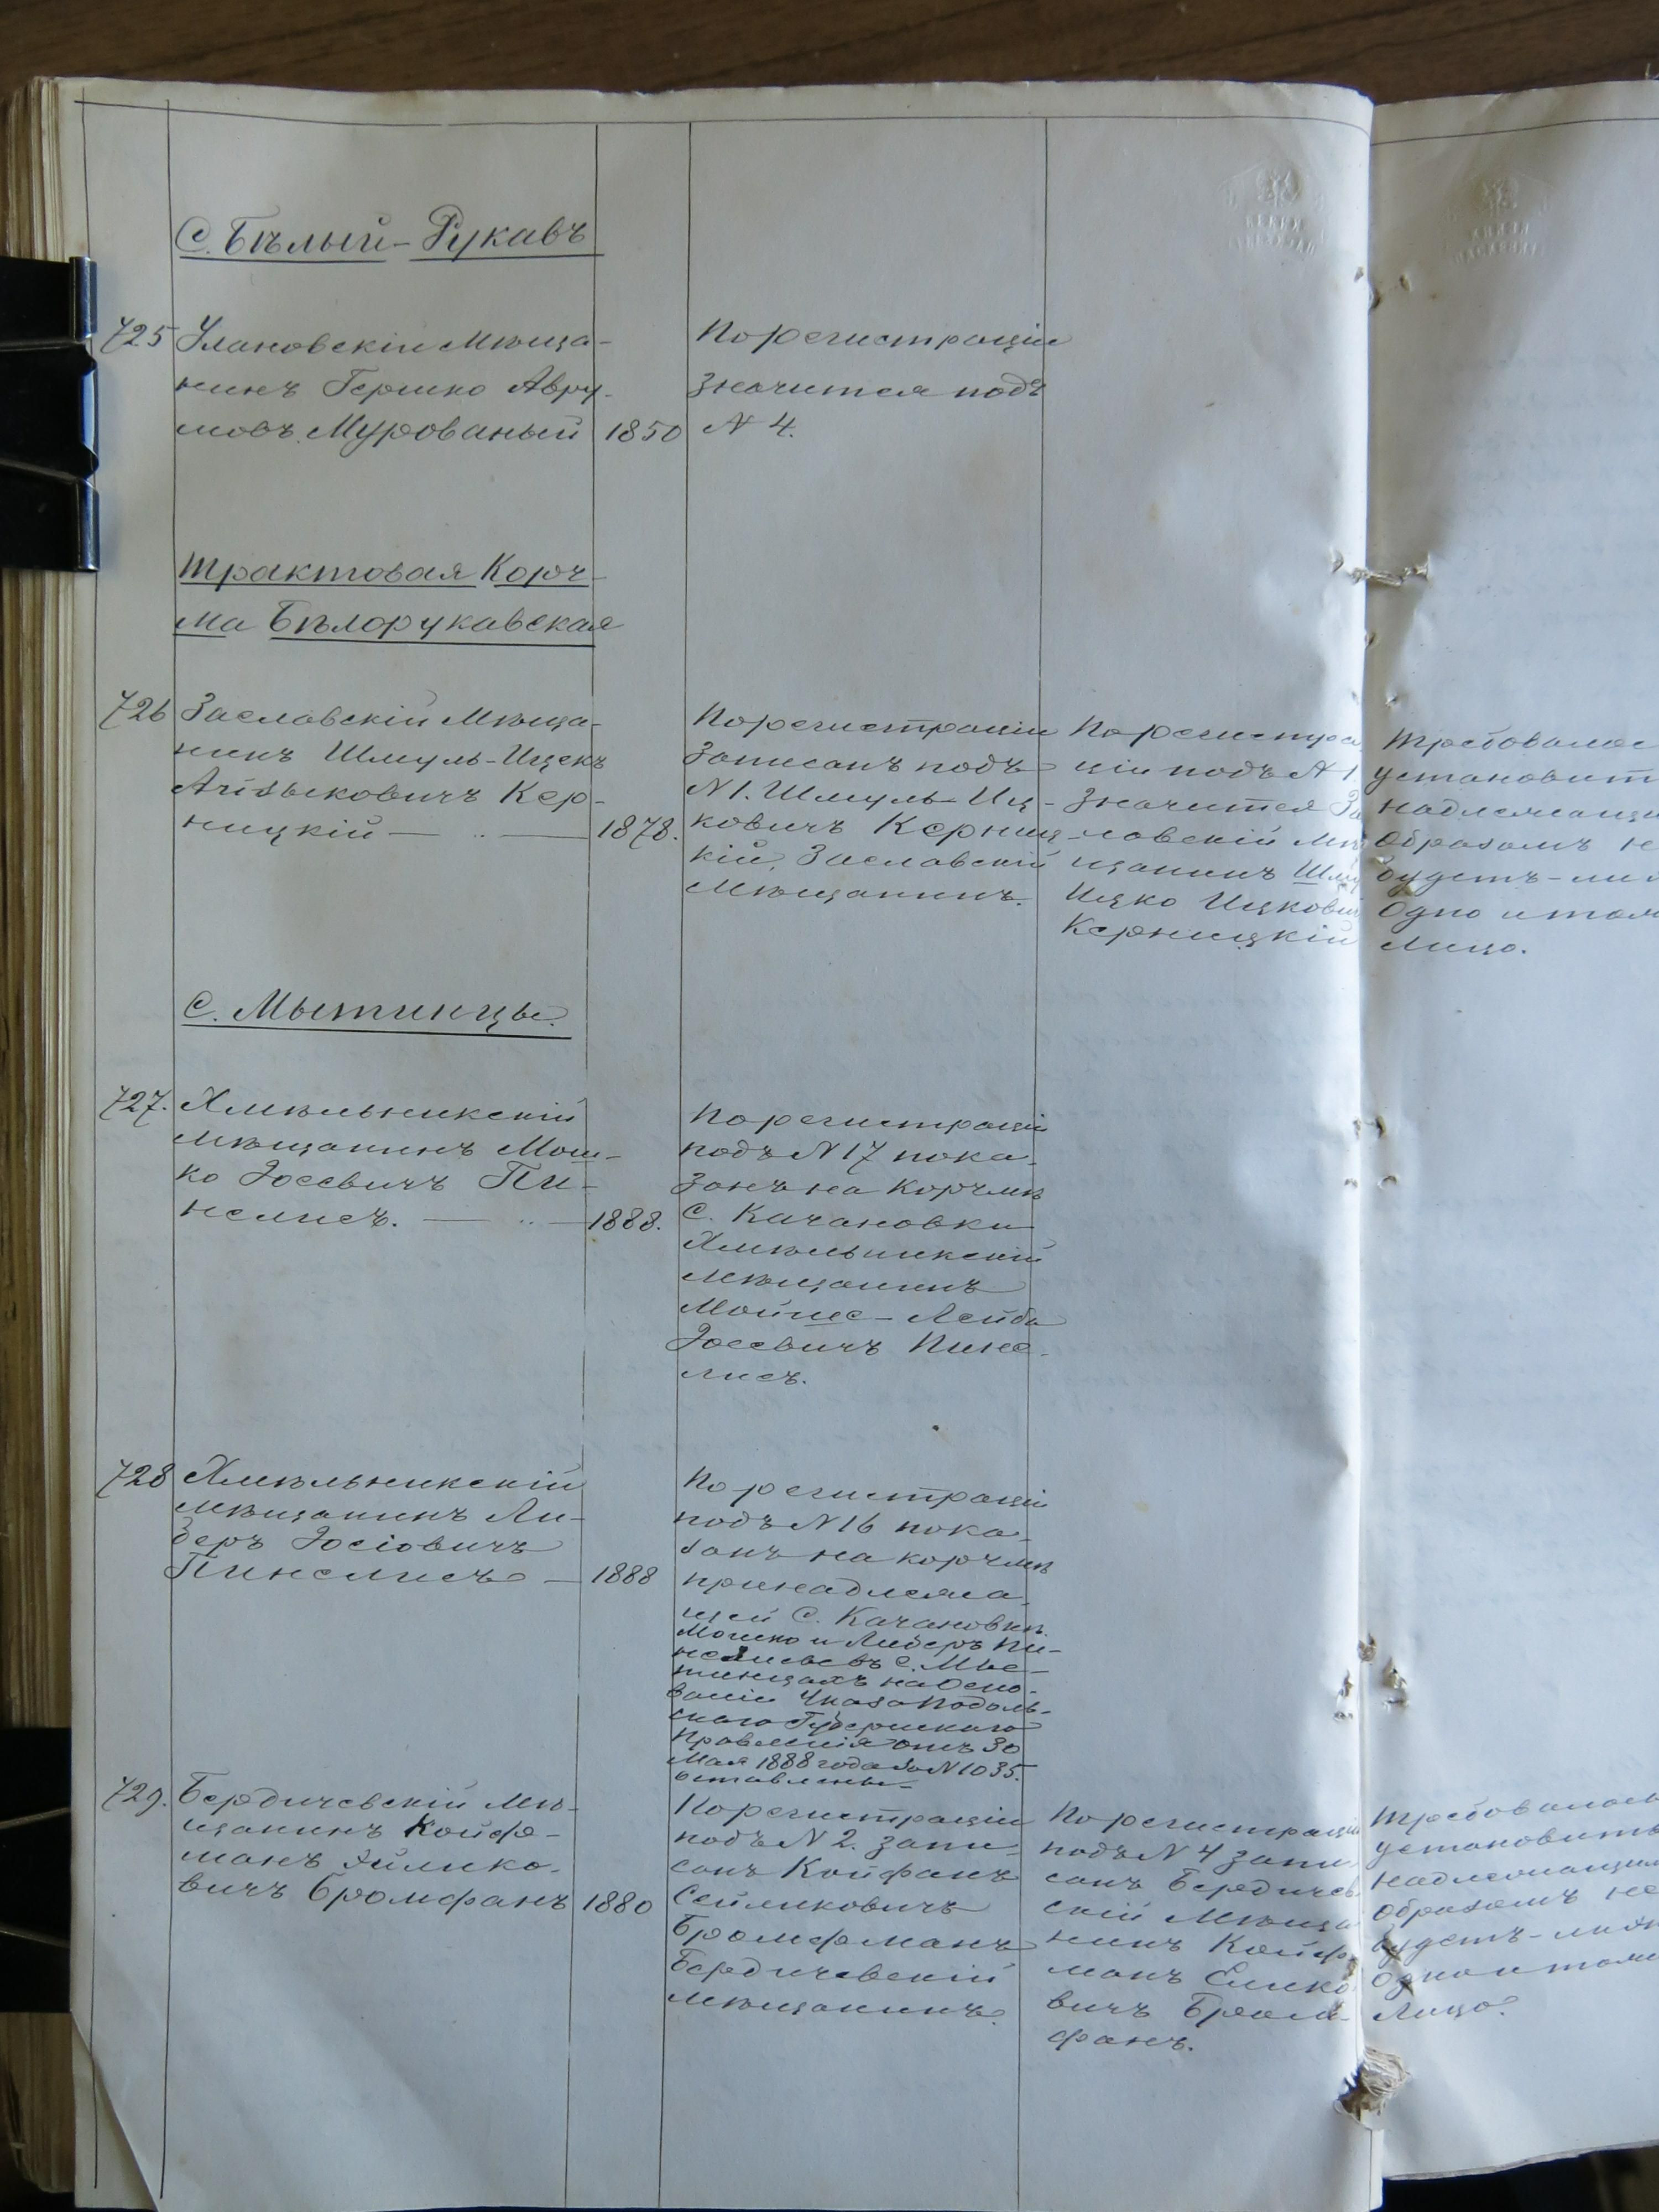 С. Бѣлый-Рукавъ
725 Улановскій Мѣща-
нинъ Гершко Авру-
мовъ Мурованый 1850
По регистраціи
значится подъ
N 4.
Трактовая Корч-
ма Бѣлорукавская
726 Заславскій Мѣща-
нинъ Шмуль-Ицекъ
Айзыковичъ Кер-
ницкій — 1878.
По регистраціи
записанъ подъ
N 1. Шмуль-Иц-
ковичъ Керниц-
кій, Заславскій
Мѣщанинъ.
По регистра
ціи подъ N 1
значится За
лавскій Мѣ
щанинъ Шму
Ицко Ицкови
Керницкій
Требовалос
установит
надлежащи
образомъ н
будетъ-ли
одно и том
лицо.
С. Мытинцы.
727. Хмѣльникскій
мѣщанинъ Мош-
ко Іосевичъ Пи-
нелисъ. — 1888.
По регистраціи
подъ N 17 пока-
занъ на Корчмѣ
С. Качановки
Хмѣльникскій
мѣщанинъ
Мойше-Лейба
Іосевичъ Пине-
лисъ.
728 Хмѣльникскій
мѣщанинъ Ли-
беръ Іосіовичъ
Пинелисъ — 1888
По регистраціи
подъ N 16 пока-
занъ на корчмѣ
принадлежа-
щей С. Качановкѣ.
Мошко и Либеръ Пи-
нелисы въ с. Мы-
тинцахъ на осно-
ваніи Указа Подоль-
скаго Губернскаго
Правленія отъ 30
Мая 1888 года за N 1035.
оставлены
729. Бердичевскій мѣ-
щанинъ Койф-
манъ
вичъ Бромфанъ 1880
По регистраціи
подъ N 2. запи-
санъ Койфанъ
Сейликовичъ
Бромфманъ
Бердичевскій
мѣщанинъ.
По регистраціи
подъ N 4 запи
санъ Бердичев
скій Мѣща
нинъ Койф
манъ Елико
вичъ Бром-
фанъ.
Требовалось
установить
надлежащим
образомъ не
будетъ-ли
одно и том
лицо.